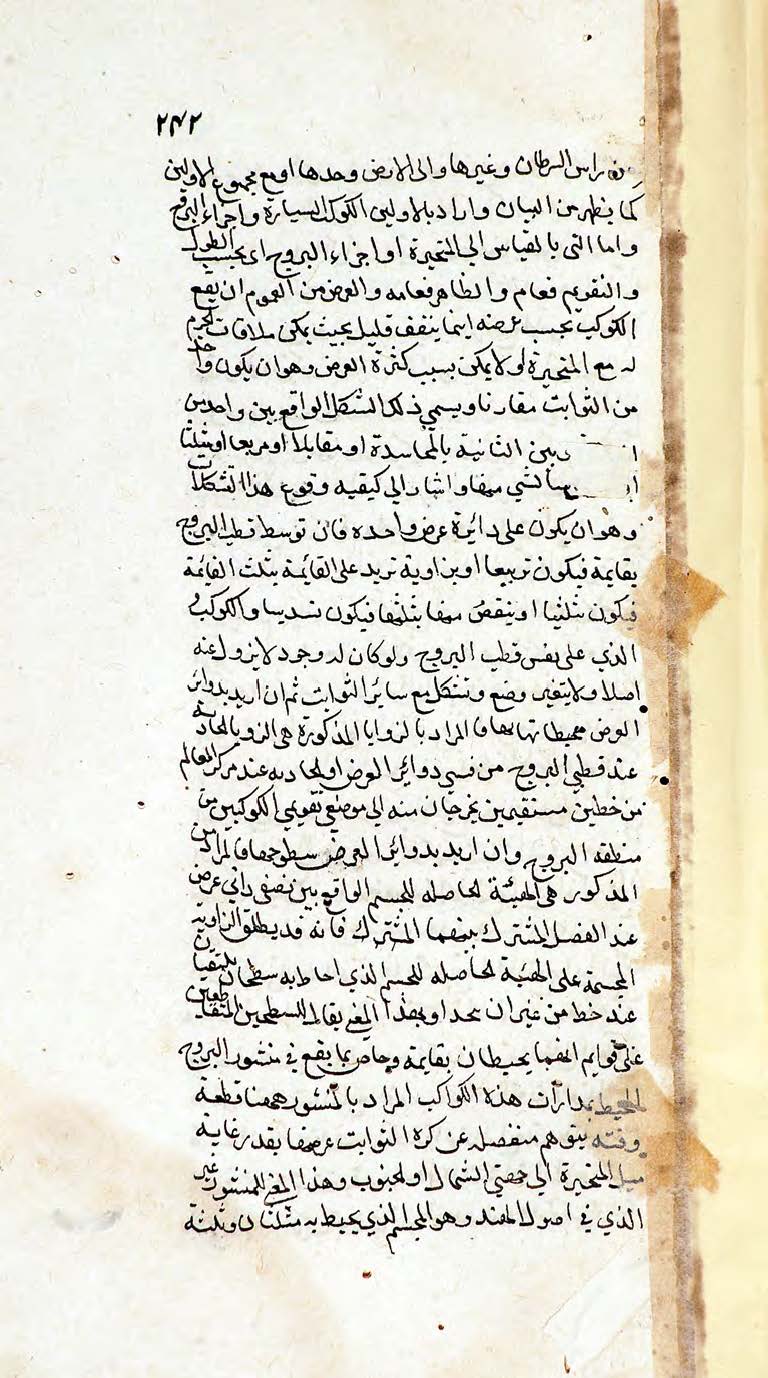 ٢٤٢
من راس السرطان وغيرها والى الارض وحدها او مع مجموع الاولين
كما يظهر من البيان واراد بالاوليى الكوكب السيارة واجزاء البروج
واما التى بالقياس الى المتحيرة او اجزاء البروج اى بحسب الطول
والتقويم فعام والظاهر فعامه والغرض من العموم ان يقع
الكوكب بحسب عرضه اينما يتفق قليل بحيث يمكن ملاقات الجرم
له مع المتحيرة او لا يمكن بسبب كثرة العرض وهو ان يكون واحد
من الثوابت مقارنا ويسمي ذلك الشكل الواقع بين واحد من
وبين الثانية بالمجاسدة او مقابلا او مربعا او مثلثا
منها لشي منها واشار الي كيفيه وقوع هذا التشكلات
وهو ان يكون على دائرة عرض واحده فان توسط قطب البروج
بقايمة فيكون تربيعا او بزاوية تريد على القائمة بثلث القائمة
فيكون تثليثا او ينقص منها بثلثها فيكون تسديسا والكوكب
الذي على نفس قطب البروج ولو كان له وجود لا يزول عنه
اصلا ولا يتغير وضع وتشكل مع سائر الثوابت ثم ان اريد بدوائر
العرض محيطاتها فالمراد بالزوايا المذكورة هى الزويا الحادثة
عند قطبي البروج من قسي دوائر العرض او الحادثه عند مركز العالم
من خطين مستقيمين يخرجان منه الى موضعي تقويمي الكوكبين من
منطقه البروج وان اريد بدوائر العرض سطوحها فالمراد من
المذكور هى الهيئة الحاصله للجسم الواقع بين نصفى دائى عرض
عند الفصل المشترك بينهما المشترك فانه قد يطلق الزاوية
المجسمة على الهيئة الحاصله للجسم الذي احاط به سطحان يلتقيان
عند خط من غيران يتحد او بهذا المعني يقال للسطحين المتقاطعين
على قوايم انهما يحيطان بقايمة وخاص بما يقع في منشور البروج
المحيط بمدارات هذه الكواكب المراد بالمنشور ههنا قطعة
وفته يتوهم منفصله عن كرة الثوابت عرضها بقدر غاية
ميل المتحيرة الى جهتي الشمال او الجنوب وهذا المعني للمنشور غير
الذي في اصول الهند وهو المجسم الذي يحيط به مثلثان وثلثة